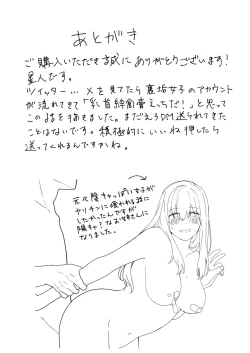 あとがき
ご購入いただき誠にありがとうございます!
星人です。
ツイッター…Xを見てたら裏垢女子のアカウント
が流れてきて「乳首綺麗えっちだ!」と思って
この話を描きました。まだえろDM送られてきた
ことはないです。積極的にいいね押したら
送ってくれるんですかね。
元々陰キャっぽい女子が
ヤリチンに喰われる話に
したかったんですが
陽キャなお姉さんに
なりました。